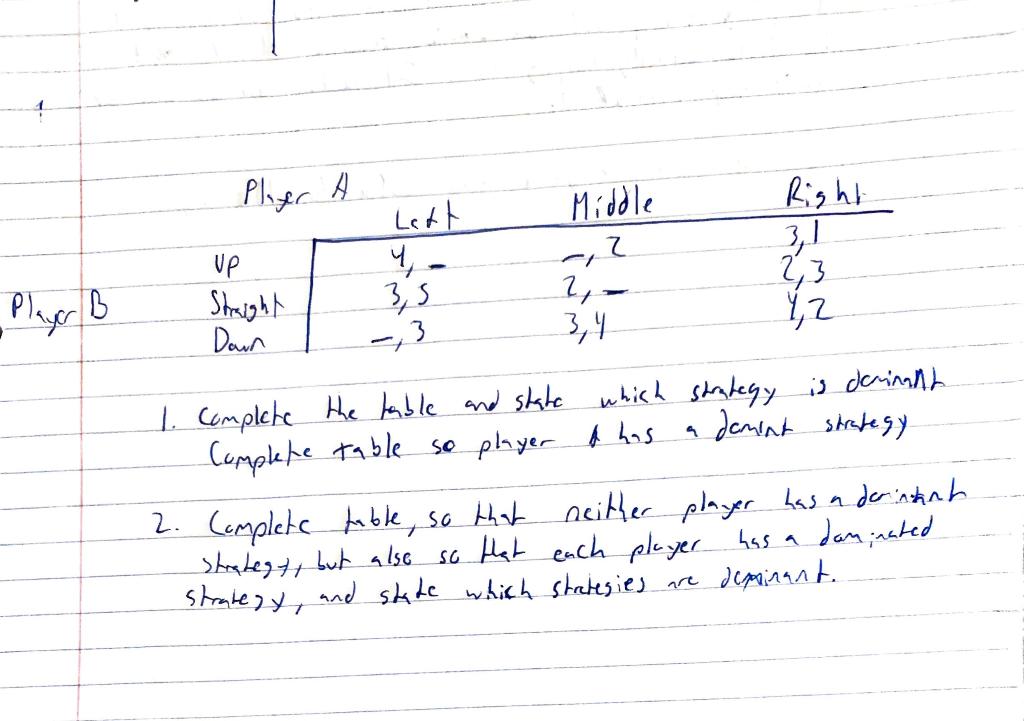 1
Player A
Left Middle Right
Up 4, – –, 2 3, 1
Player B Straight 3, 5 2, – 2, 3
Down –, 3 3, 4 4, 2
1. Complete the table and state which strategy is dominant
Complete table so player A has a domint strategy
2. Complete table, so that neither player has a dorintant
strategy, but also so that each player has a dominated
strategy, and state which strategies are dominant.